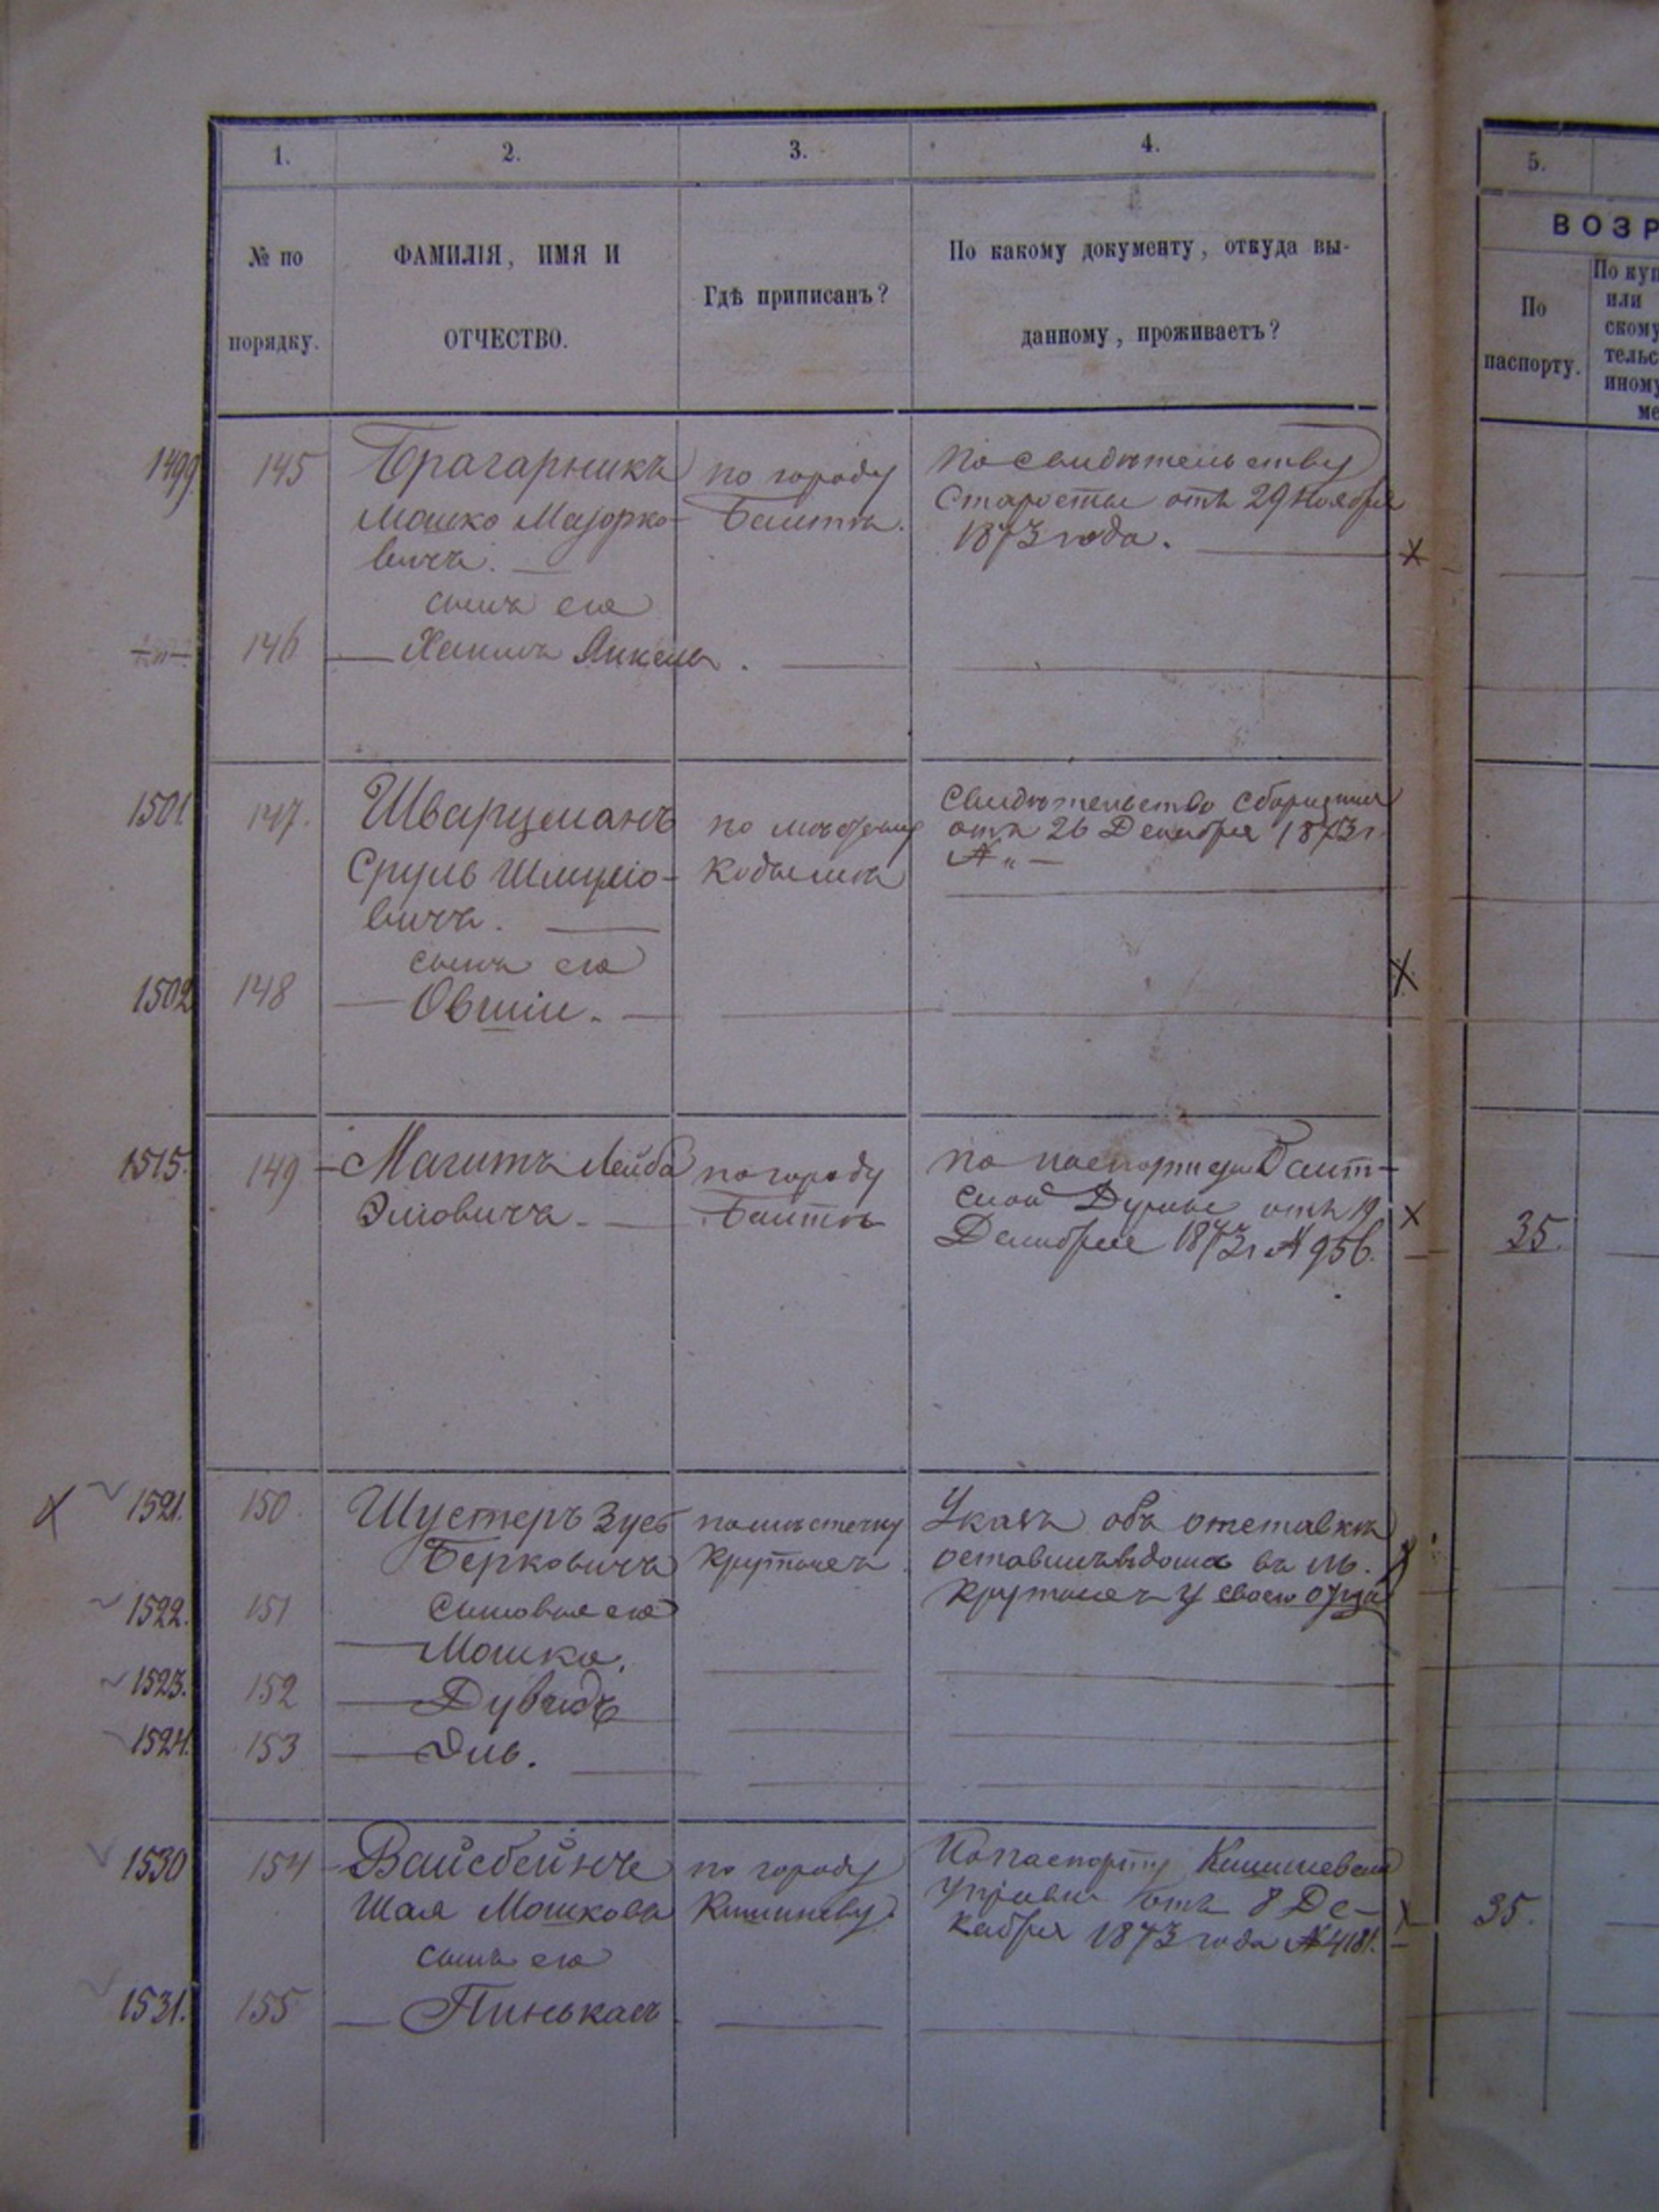 1.
2.
3.
4.
№ по
порядку.
ФАМИЛІЯ, ИМЯ И
ОТЧЕСТВО.
Гдѣ приписанъ?
По какому документу, откуда вы-
данному, проживаетъ?
5.
ВОЗР
По
паспорту.
По куп
или
скому
тельс
иному
ме
1499
145
Брагарникъ
Мошко Маіорко-
вичъ.
по городу
Балтѣ.
По свидѣтельству
Старосты отъ 29 Ноября
1873 года.
сынъ его
146
Янкель.
1501.
147.
Шварцманъ
Сруль Шмуліо-
вичъ.
по мѣстечку
Кодымѣ
Свидѣтельство Сборщика
отъ 26 Декабря 1873 г.
№ " —
сынъ его
1502
148
Овшій.
1515.
149
Магитъ Лейба
Эліовичъ.
по городу
Балтѣ
по паспорту Балт-
ской Думы отъ 19
Декабря 1873 г № 956.
35.
1521.
150.
Шустеръ Зусь
Берковичъ
по мѣстечку
Крутыхъ
Указъ объ отставкѣ
въ м.
Крутыхъ у своего отца
сыновья его
1522.
151
Мошко.
1523.
152
Дувидъ
1524.
153
Эль.
1530
154
Вайсбейнъ
Шая Мошковъ
по городу
Кишиневу.
По паспорту Кишиневской
Управы отъ 8 Де-
кабря 1873 года № 4181.
35.
сынъ его
1531.
155
Пинькасъ